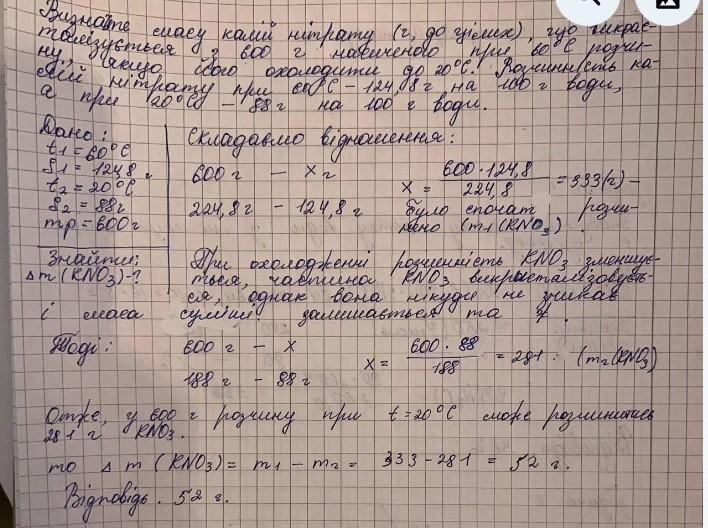 Визначте масу калій нітрату (г, до цілих), що викрис-
талізується з 600 г насиченого при 60°С розчи-
ну, якщо його охолодити до 20°С. Розчинність ка-
лій нітрату при 60°С - 124,8г на 100 г води,
а при 20°С - 88г на 100 г води.
Дано:
t1 = 60°С
S1 = 124,8 г
t2 = 20°С
S2 = 88г
mр = 600г
Знайти:
Δm (KNO3) - ?
Складаємо відношення:
600г - х г
224,8г - 124,8 г
x = 600·124,8 / 224,8 = 333(г) -
було спочат розчи-
нено (m1(KNO3)
При охолодженні розчинність KNO3 зменшує-
ться, частина KNO3 викристалізовуєть-
ся, однак вона нікуди не зникає
і маса суміші залишається та ж.
Тоді:
600 г - х
188 г - 88г
x = 600·88 / 188 = 281 (m2(KNO3)
Отже, у 600 г розчину при t = 20°С може розчинитись
281 г KNO3.
то Δ m (KNO3) = m1 - m2 = 333 - 281 = 52 г.
Відповідь. 52 г.